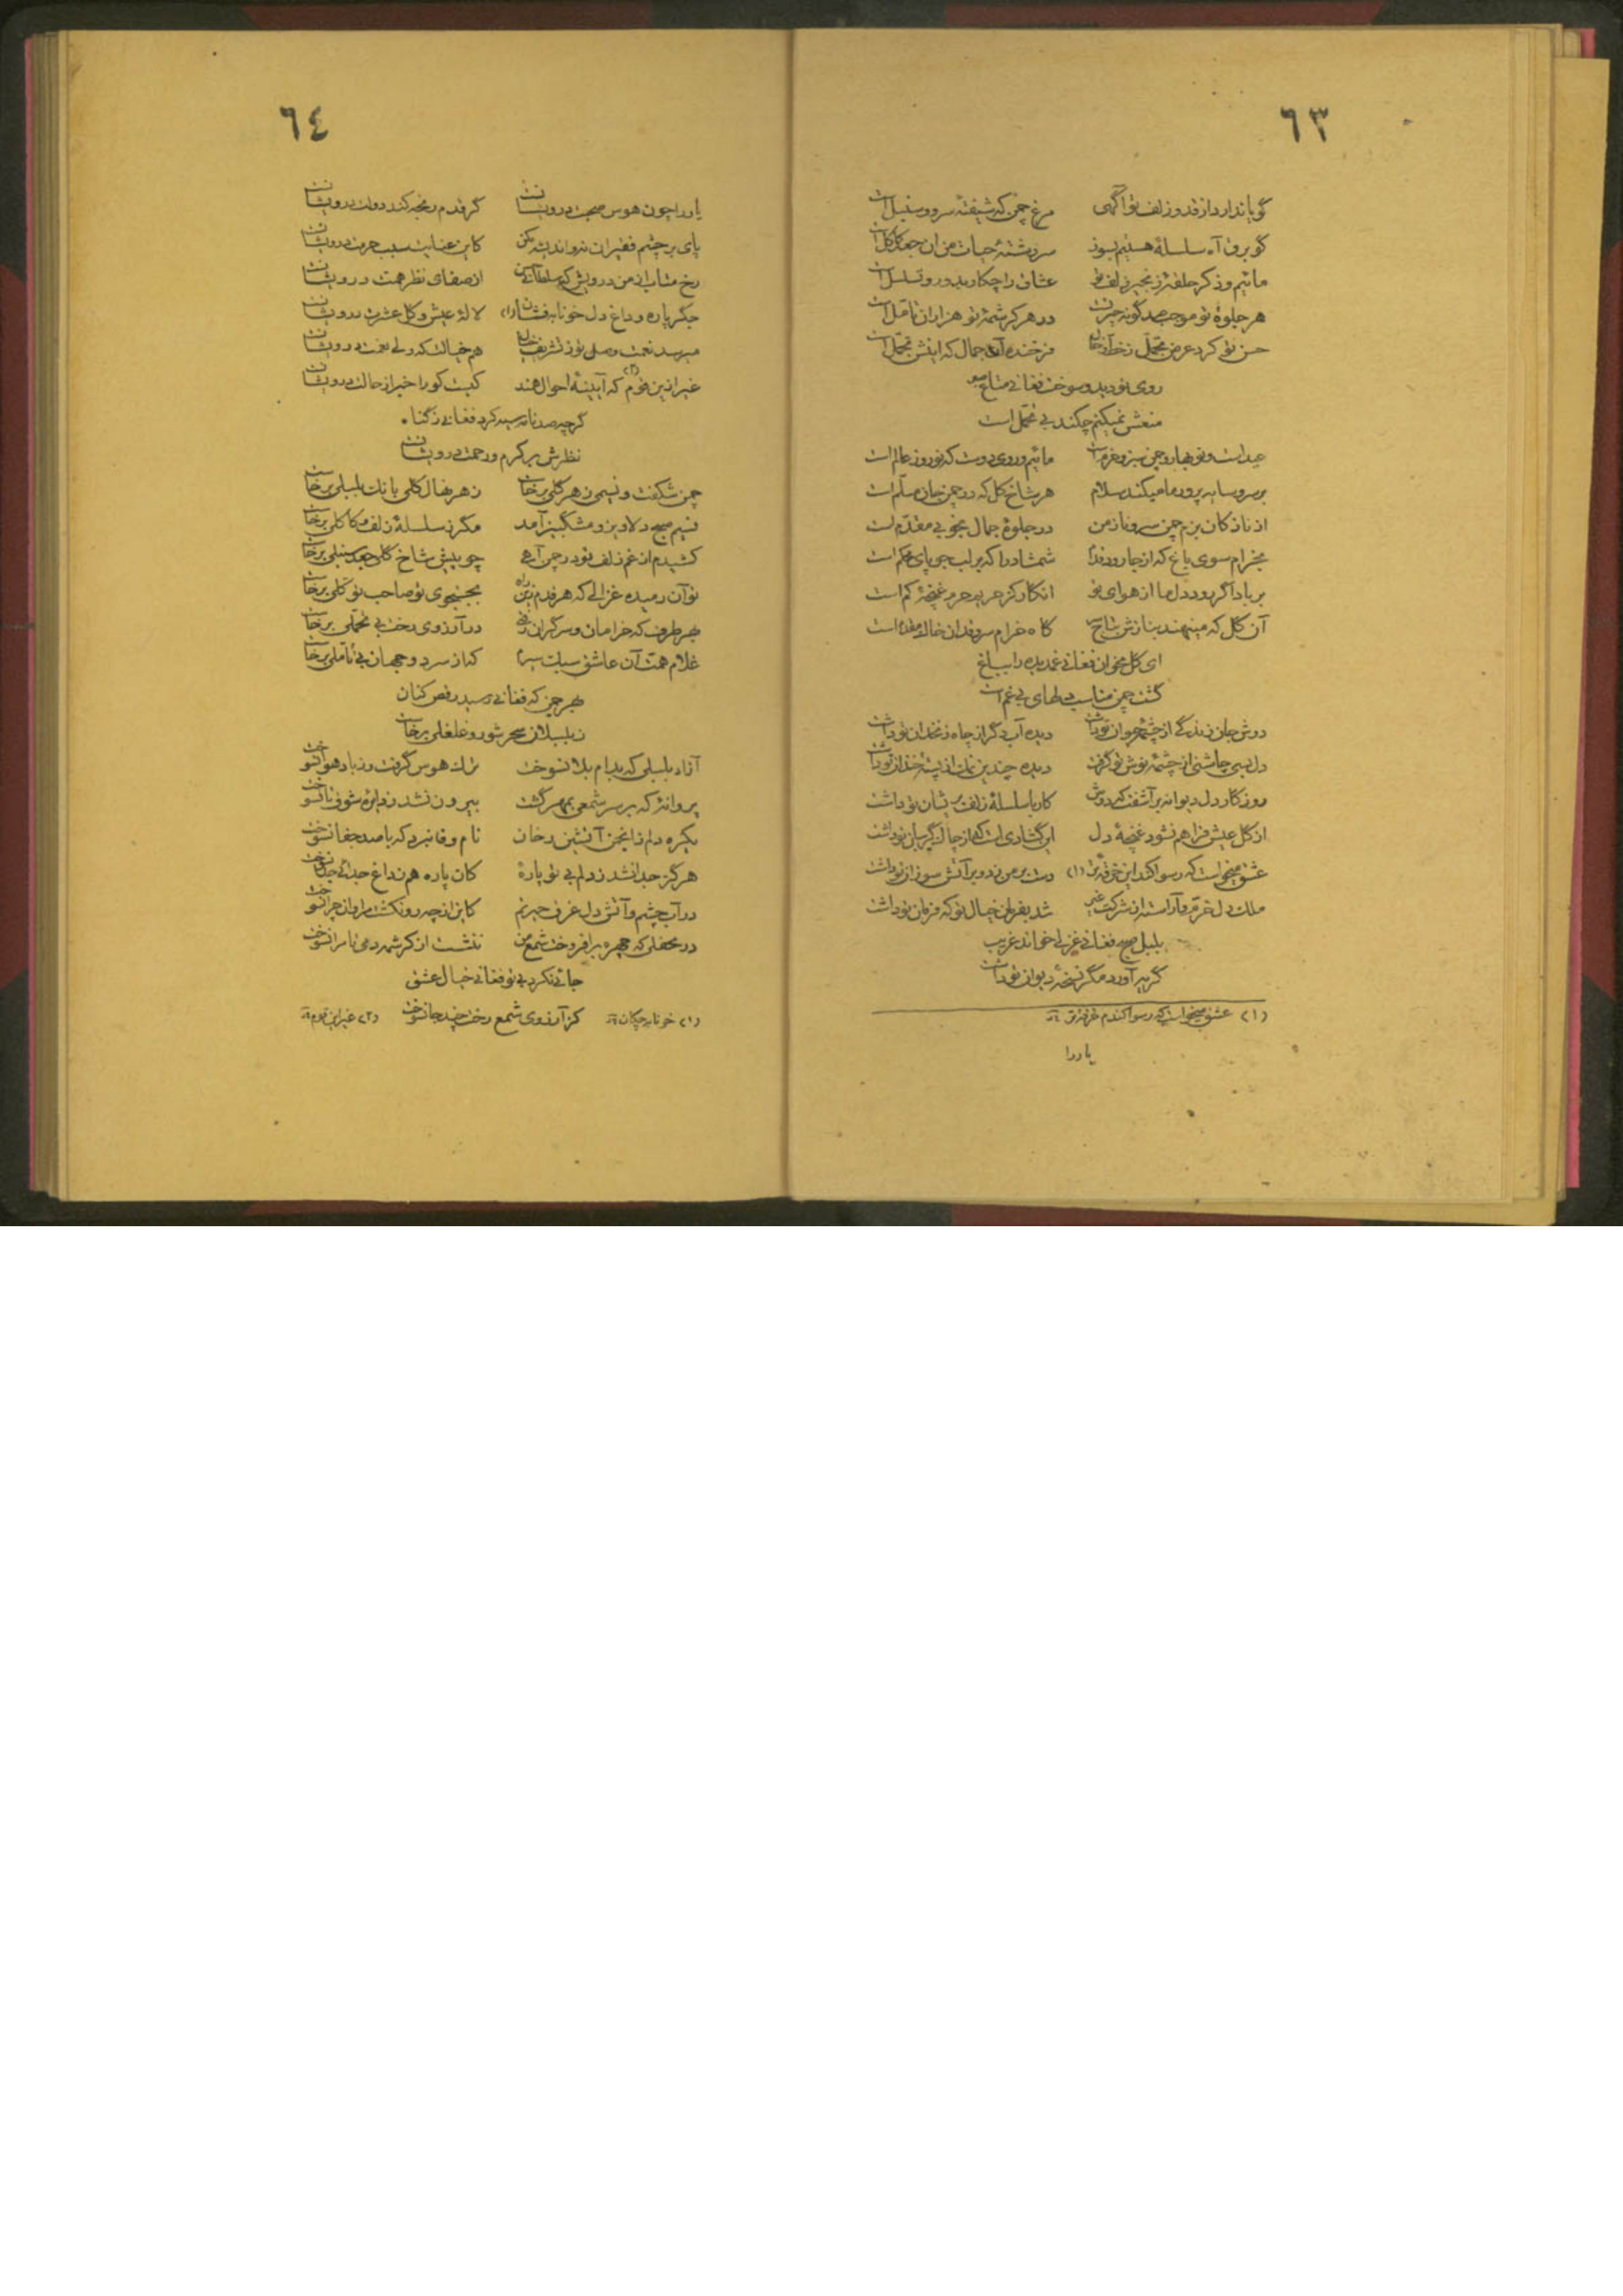 ٦٣
گویا ندارد از قد و زلف تو آگهی مرغ چمن که شیفتهٔ سرو و سنبل است
گو برق آه سلسلهٔ هستیم بسوز سررشتهٔ حیات من آن جعد کاکل است
مائیم و ذکر حلقهٔ زنجیر زلف تو عشاق را چکار بدور و تسلسل است
هر جلوهٔ تو موجب صد گونه حیرتست در هر کرشمهٔ تو هزاران تأمل است
حسن تو کرد عرض تجمل ز خط و خال فرخنده آن جمال که اینش تجمل است
روی تو دید و سوخت فغانی متاع صبر
منعش نمیکنم چکند بی تحمل است
عید است و نوبهار و چمن سبز و خرم است مائیم و روی دوست که نوروز عالم است
بر سرو سایه پرور ما میکند سلام هر شاخ گل که در چمن جان مسلم است
از ناز کان بزم چمن سرو ناز من در جلوهٔ جمال بخوبی مقدم است
بخرام سوی باغ که از جا رود شمشاد را که بر لب جو پای محکم است
بر باد اگر رود دل ما از هوای تو انگار کز حریم حرم غنچهٔ کم است
آن گل که مینهند بنازش بتاج سر گاه خرام سرو قدان خاک مقدم است
ای گل مخوان فغانی غمدیده را بباغ
گشت چمن مناسب دلهای بی غم است
دوش جان زندگی از چشمهٔ حیوان تو داشت دیده آب دگر از چاه زنخدان تو داشت
دل بسی چاشنی از چشمهٔ نوش تو گرفت دیده چندین نمک از پستهٔ خندان تو داشت
روزگار دل دیوانه بر آشفت که دوش کار با سلسلهٔ زلف پریشان تو داشت
از گل عیش فراهم نشود غنچهٔ دل این گشادی است که از چاک گریبان تو داشت
عشق میخواست که رسوا کند این خرقهٔ (١) دست بر من زد و بر آتش سوزان تو داشت
ملک دل خرم و آراسته از شرکت غیر شد بفرمان خیال تو که فرمان تو داشت
بلبل صبح فغانی غزلی خواند غریب
گریه آورد مگر نسخهٔ دیوان تو داشت
(١) عشق میخواست که رسوا کندم خرقه
یار را
٦٤
یار را چون هوس صحبت درویشانست گر قدم رنجه کند دولت درویشانست
پای بر چشم فقیران نه و اندیشه مکن کاین عنایت سبب حرمت درویشانست
رخ متاب از من درویش که سلطانی من از صفای نظر همت درویشانست
جگر پاره و داغ دل خونابه فشان (١) لالهٔ عیش و گل عشرت درویشانست
میرسد نعمت وصل تو ز تشریف هم خیالت که ولی نعمت درویشانست
غیر ازین قوم (٢) که آیینهٔ احوال همند کیست کو را خبر از حالت درویشانست
گرچه صد نامه سیه کرد فغانی ز گناه
نظرش بر کرم و رحمت درویشانست
چمن شکفت و نسیمی ز هر گلی برخاست ز هر نهال گلی بانک بلبلی برخاست
نسیم صبح دلاویز و مشگبیز آمد مگر ز سلسلهٔ زلف و کاکلی برخاست
کشیدم از غم زلف تو در چمن آهی چو پیش شاخ گلی جعد سنبلی برخاست
تو آن رمیده غزالی که هر قدم زین راه بجستجوی تو صاحب توکلی برخاست
بهر طرف که خرامان و سرگران رفتی در آرزوی رخت بی تحملی برخاست
غلام همت آن عاشق سبک سیرم که از سر دو جهان بی تأملی برخاست
بهر چمن که فغانی رسید رقص کنان
ز بلبلان سحر شور و غلغلی برخاست
آزاد بلبلی که بدام بلا نسوخت ترک هوس گرفت و ز باد هوا نسوخت
پروانهٔ که بر سر شمعی بمهر گشت بیرون نشد ز دایرهٔ شوق تا نسوخت
یکره دلم ز انجمن آتشین رخان نام وفا نبرد که با صد جفا نسوخت
هرگز جدا نشد ز دلم بی تو پارهٔ کان پاره هم ز داغ جدائی جدا نسوخت
در آب چشم و آتش دل غرق حیرتم کاین از چه رو نکشت مرا و آن چرا نسوخت
در محفلی که چهره برافروخت شمع من ننشست از کرشمه دمی تا مرا نسوخت
جائی نکرد بی تو فغانی خیال عشق
کز آرزوی شمع رخت چند جا نسوخت
(١) خونابه چکان
(٢) غیر این قوم